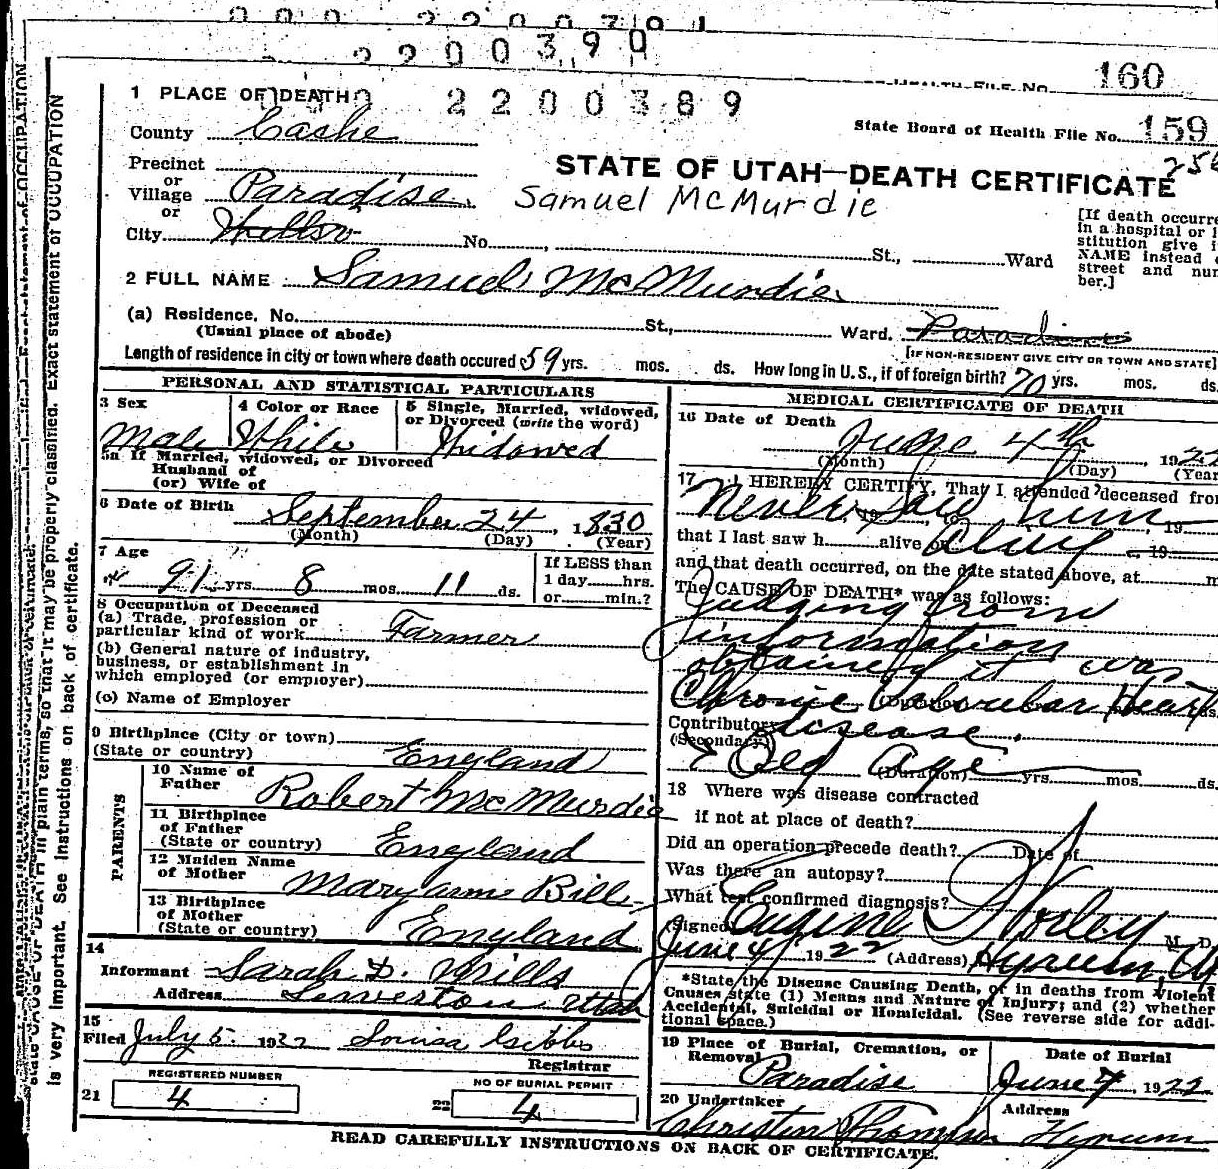 2200390
HEALTH FILE NO. 160
1 PLACE OF DEATH 2200389
State Board of Health File No. 159
County Cashe
STATE OF UTAH—DEATH CERTIFICATE
Precinct
or
Village Paradise
Samuel McMurdie
or
City No. St., Ward
[If death occurre
in a hospital or i
stitution give i
NAME instead
street and num
ber.]
2 FULL NAME Samuel McMurdie
(a) Residence, No. St., Ward. Paradise
(Usual place of abode)
[IF NON-RESIDENT GIVE CITY OR TOWN AND STATE]
Length of residence in city or town where death occured 59 yrs. mos. ds. How long in U. S., if of foreign birth? 70 yrs. mos. ds.
PERSONAL AND STATISTICAL PARTICULARS
3 Sex
Male
4 Color or Race
White
5 Single, Married, widowed,
or Divorced (write the word)
Widowed
5a If Married, widowed, or Divorced
Husband of
(or) Wife of
6 Date of Birth
September 24, 1830
(Month) (Day) (Year)
7 Age
91 yrs. 8 mos. 11 ds.
If LESS than
1 day hrs.
or min.?
8 Occupation of Deceased
(a) Trade, profession or
particular kind of work Farmer
(b) General nature of industry,
business, or establishment in
which employed (or employer)
(c) Name of Employer
9 Birthplace (City or town)
(State or country) England
PARENTS
10 Name of
Father Robert McMurdie
11 Birthplace
of Father
(State or country) England
12 Maiden Name
of Mother Mary ann Bill
13 Birthplace
of Mother
(State or country) England
14
Informant Sarah D. Mills
Address Utah
15
Filed July 5 1922 Louisa Gibbs
Registrar
REGISTERED NUMBER
21 4
NO OF BURIAL PERMIT
22 4
MEDICAL CERTIFICATE OF DEATH
16 Date of Death
June 4th 1922
(Month) (Day) (Year
17 I HEREBY CERTIFY, That I attended deceased from
Never Saw him 19
that I last saw h alive on Alive 19
and that death occurred, on the date stated above, at m
The CAUSE OF DEATH* was as follows:
Judging from
information
obtained it was
Chronic Valvular Heart
Contributory disease.
(Secondary)
Old Age
(Duration) yrs. mos. ds.
18 Where was disease contracted
if not at place of death?
Did an operation precede death? Date of
Was there an autopsy?
What test confirmed diagnosis?
(Signed Eugene Worley M. D.
June 4, 1922 (Address) Hyrum Ut
*State the Disease Causing Death, or in deaths from Violent
Causes state (1) Means and Nature of Injury; and (2) whether
Accidental, Suicidal or Homicidal. (See reverse side for addi-
tional space.)
19 Place of Burial, Cremation, or
Removal
Paradise
Date of Burial
June 7, 1922
20 Undertaker
Christen Thomsen
Address
Hyrum
READ CAREFULLY INSTRUCTIONS ON BACK OF CERTIFICATE.
in plain terms, so that it may be properly classified. Exact statement of OCCUPATION
is very important. See Instructions on back of certificate.